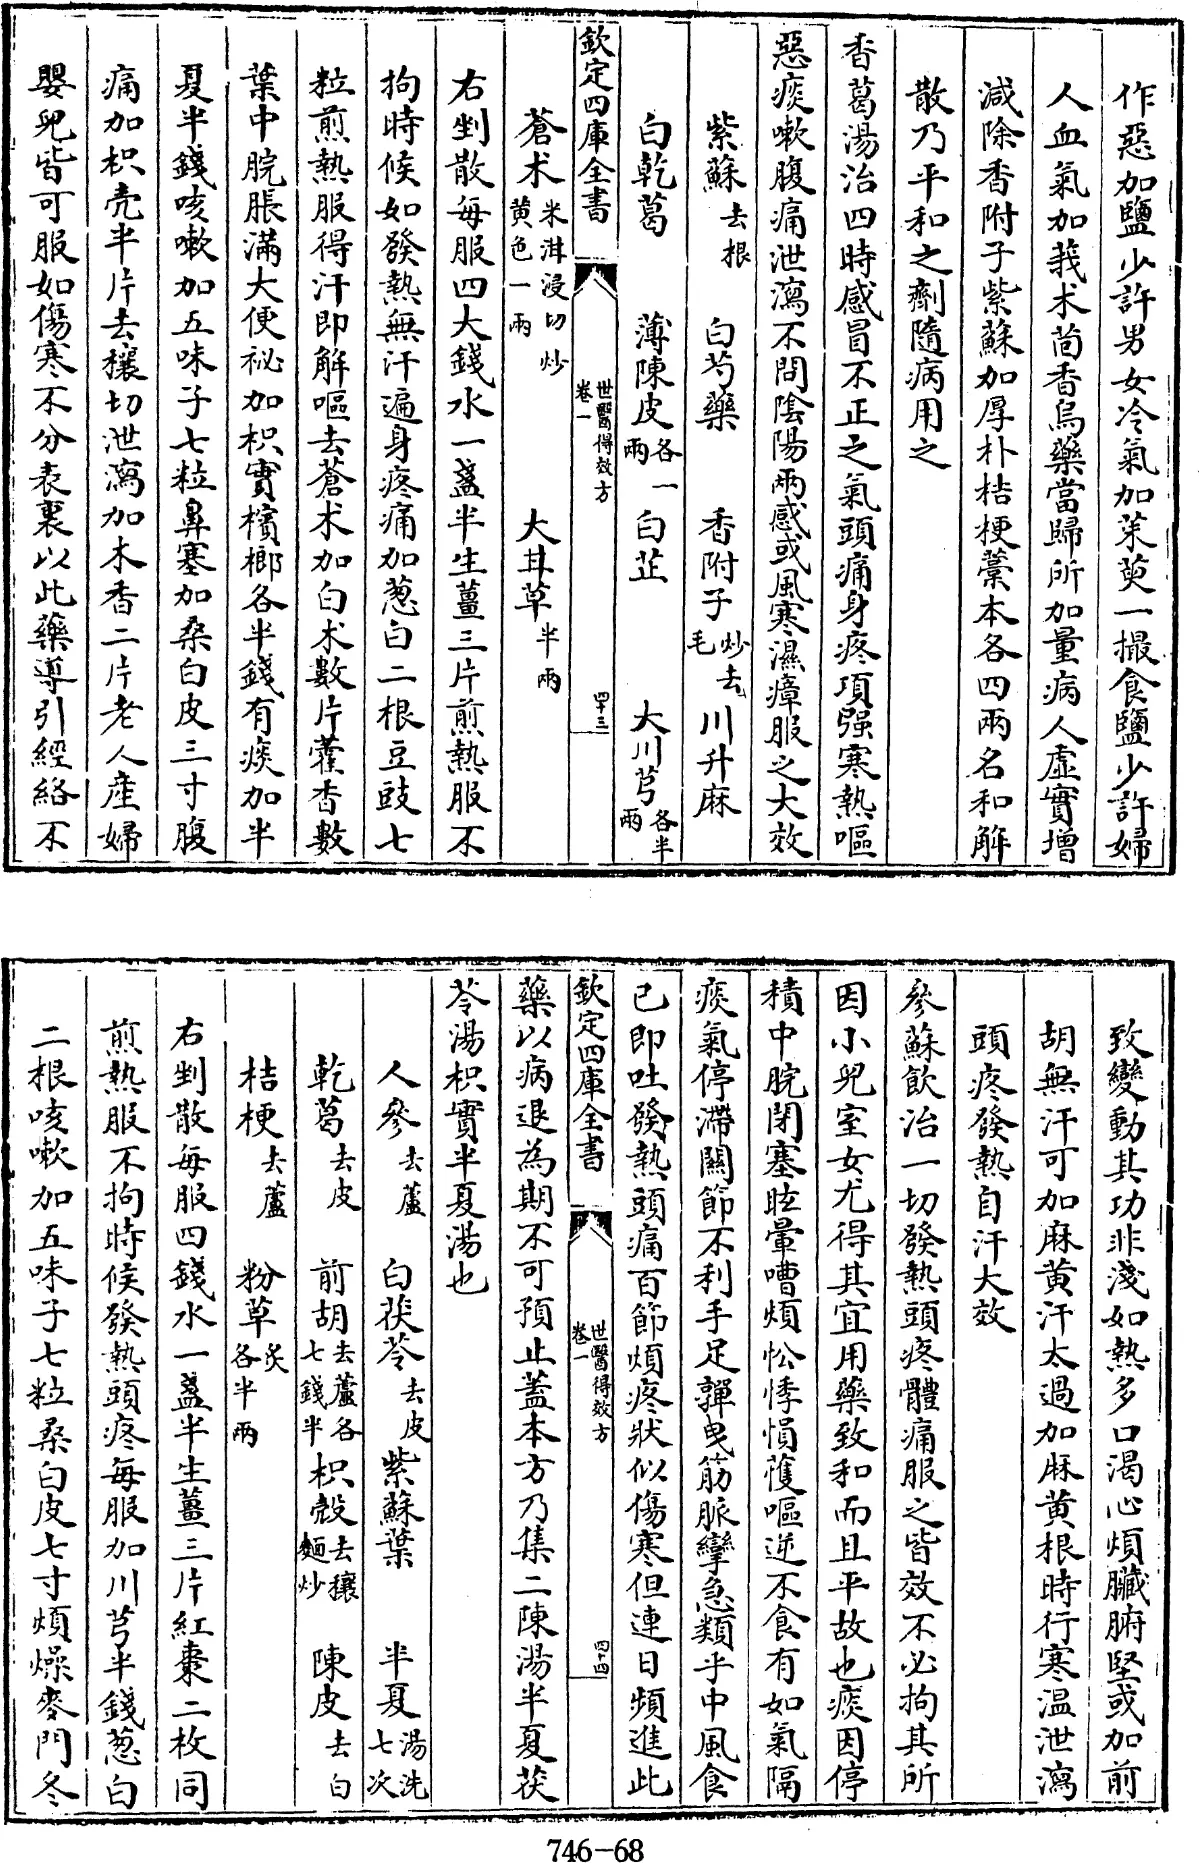 作惡加鹽少許男女冷氣加茱萸一撮食鹽少許婦
人血氣加莪术茴香烏藥當歸所加量病人虛實增
減除香附子紫蘇加厚朴桔梗藁本各四兩名和解
散乃平和之劑隨病用之
香葛湯治四時感冒不正之氣頭痛身疼項强寒熱嘔
惡痰嗽腹痛泄瀉不問陰陽兩感或風寒濕瘴服之大效
紫蘇去根 白芍藥 香附子炒去毛 川升麻
白乾葛 薄陳皮各一兩 白芷 大川芎各半兩
欽定四庫全書 世醫得效方 卷一 四十三
蒼术米泔浸切炒黄色一兩 大甘草半兩
右剉散每服四大錢水一盞半生薑三片煎熱服不
拘時候如發熱無汗遍身疼痛加葱白二根豆豉七
粒煎熱服得汗即解嘔去蒼术加白术數片藿香數
葉中脘脹滿大便祕加枳實檳榔各半錢有痰加半
夏半錢咳嗽加五味子七粒鼻塞加桑白皮三寸腹
痛加枳壳半片去穰切泄瀉加木香二片老人產婦
嬰兒皆可服如傷寒不分表裏以此藥導引經絡不
致變動其功非淺如熱多口渴心煩臟腑堅或加前
胡無汗可加麻黄汗太過加麻黄根時行寒温泄瀉
頭疼發熱自汗大效
參蘇飲治一切發熱頭疼體痛服之皆效不必拘其所
因小兒室女尤得其宜用藥致和而且平故也痰因停
積中脘閉塞眩暈嘈煩忪悸愩愯嘔逆不食有如氣隔
痰氣停滯關節不利手足嚲曳筋脈攣急類乎中風食
已即吐發熱頭痛百節煩疼狀似傷寒但連日頻進此
欽定四庫全書 世醫得效方 卷一 四十四
藥以病退為期不可預止蓋本方乃集二陳湯半夏茯
苓湯枳實半夏湯也
人參去蘆 白茯苓去皮 紫蘇葉 半夏湯洗七次
乾葛去皮 前胡去蘆各七錢半 枳殼去穰麵炒 陳皮去白
桔梗去蘆 粉草炙各半兩
右剉散每服四錢水一盞半生薑三片紅棗二枚同
煎熱服不拘時候發熱頭疼每服加川芎半錢葱白
二根咳嗽加五味子七粒桑白皮七寸煩燥麥門冬
746-68